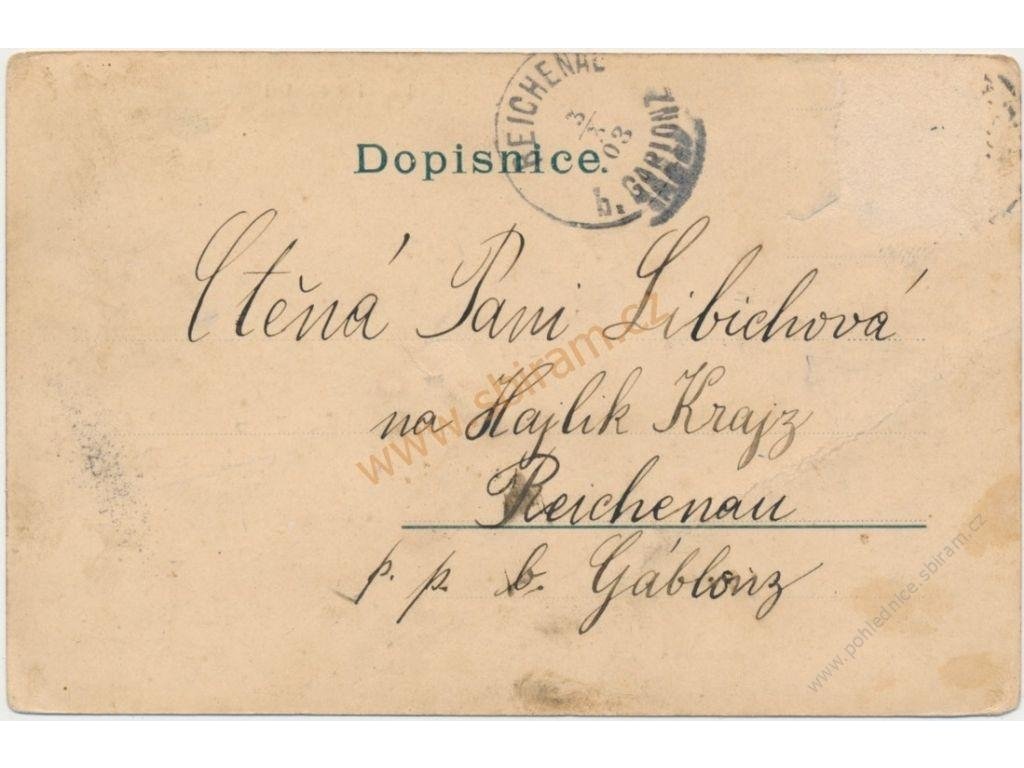 REICHENAU
3/3 03
b. GABLONZ
Dopisnice.
Ctěná Paní Libichová
na Hajlik Krajz
Reichenau
p. p. b. Gáblonz
www.sbiram.cz
www.pohlednice.sbiram.cz